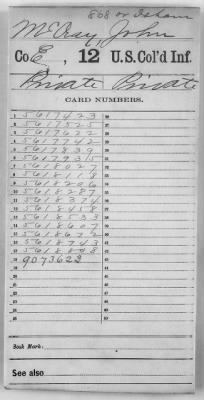 868 or Isham
McCray, John
Co. E, 12 U.S. Col'd Inf.
Private Private
CARD NUMBERS.
1 5617423 26
2 5617525 27
3 5617622 28
4 5617742 29
5 5617839 30
6 56179315 31
7 5618027 32
8 5618118 33
9 5618206 34
10 5618287 35
11 5618374 36
12 5618458 37
13 5618533 38
14 5618607 39
15 5618672 40
16 5618743 41
17 5618808 42
18 9073623 43
19 44
20 45
21 46
22 47
23 48
24 49
25 50
Book Mark:
See also